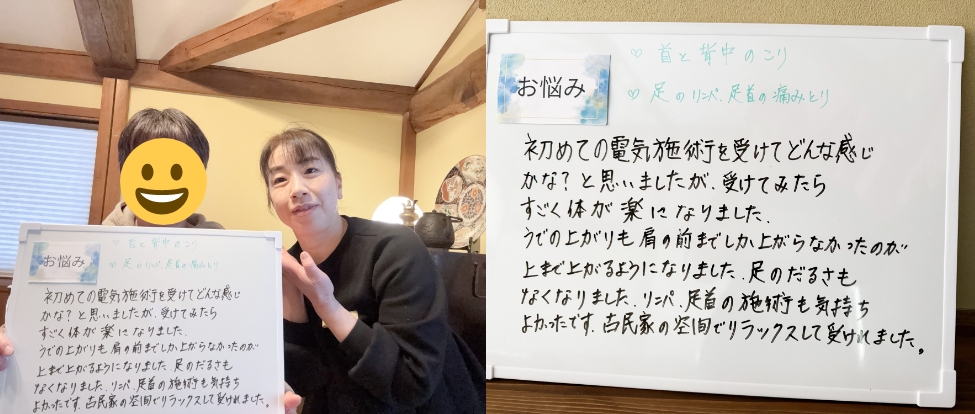 お悩み
♡ 首と背中のこり
♡ 足のリンパ、足首の痛みとり
初めての電気施術を受けてどんな感じ
かな?と思いましたが、受けてみたら
すごく体が楽になりました.
うでの上がりも肩の前までしか上がらなかったのが
上まで上がるようになりました.足のだるさも
なくなりました.リンパ、足首の施術も気持ち
よかったです.古民家の空間でリラックスして受けれました。
お悩み
♡ 首と背中のこり
♡ 足のリンパ、足首の痛みとり
初めての電気施術を受けてどんな感じ
かな?と思いましたが、受けてみたら
すごく体が楽になりました.
うでの上がりも肩の前までしか上がらなかったのが
上まで上がるようになりました.足のだるさも
なくなりました.リンパ、足首の施術も気持ち
よかったです.古民家の空間でリラックスして受けれました。